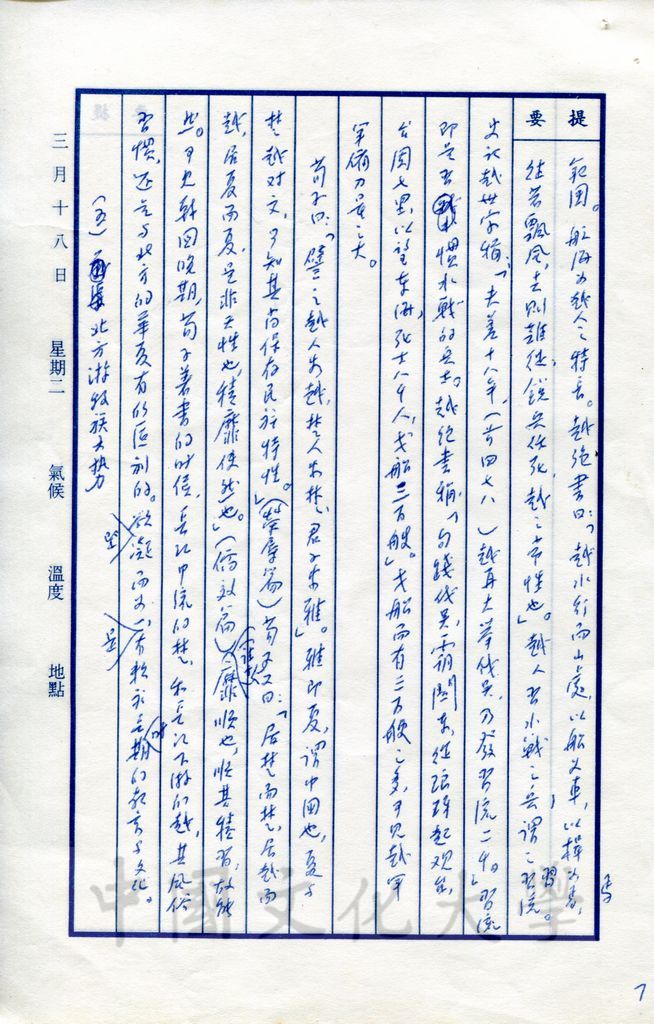 提要
範圍。航海为越人之特長。越絕書曰:「越水行而山處,以船为車,以楫为馬,
往若飄風,去則難從,銳兵任死,越之常性也。」越人習水戰之兵謂之習流。
史記越世家稱:「夫差十八年,(前四七八)越再大举伐吳,乃發習流二千。」習流
即是習慣水戰的兵士。越絕書稱:「句踐伐吳,霸關東,從琅琊起观台,
台周七里,以望东海,死士八千人,戈船三百艘。」戈船而有三百艘之多,可見越軍
軍備力量之大。
荀子曰:「譬之越人安越,楚人安楚,君子安雅」。雅即夏,谓中国也,夏与
楚越对文,可知其尚保存民族特性。」(荣辱篇)荀子又曰:「居楚而楚,居越而
越,居夏而夏,是非天性也,積靡使然也。」(儒效篇)靡順也,順其積習,故能
然。可見戰国晚期,荀子著書的时候,長江中流的楚,和長江下游的越,其風俗
習慣,还是与北方的華夏有的區別的。欲凝而为一,有賴於長期的教育与文化。
(五)北方游牧族大勢力
三月十八日 星期二 氣候 溫度 地點
中國文化大學
7